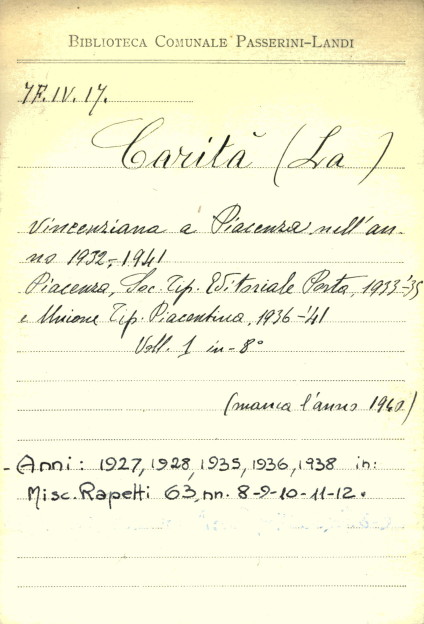 BIBLIOTECA COMUNALE PASSERINI-LANDI
7F.IV.17.
Carità (La)
Vincenziana a Piacenza nell'an-
no 1932-1941
Piacenza, Soc. Tip. Editoriale Porta, 1933-'35
e Unione Tip. Piacentina, 1936-'41
Voll. 1 in-8°
(manca l'anno 1940)
- Anni: 1927, 1928, 1935, 1936, 1938 in:
Misc. Rapetti 63, nn. 8-9-10-11-12.